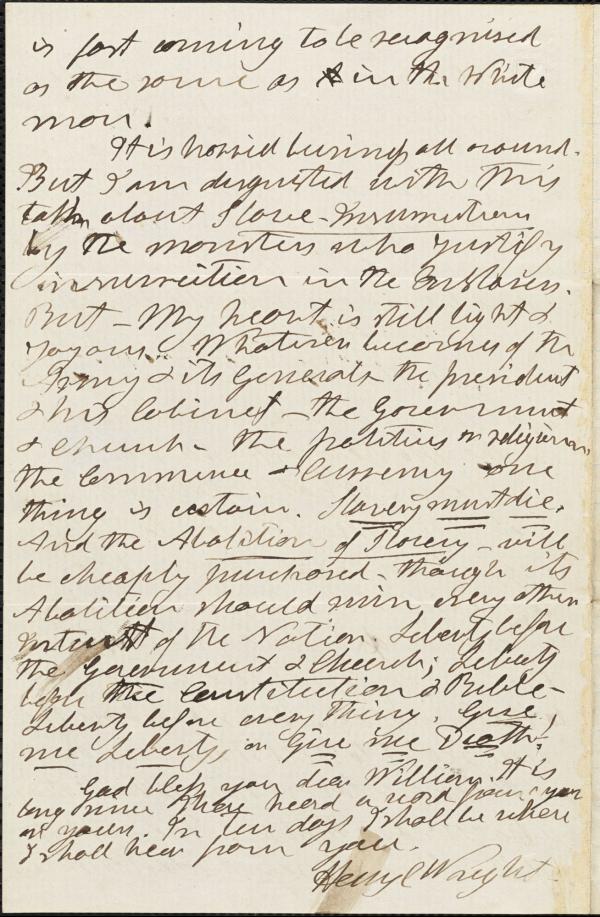 is fast coming to be recognised
as the same as in the White
man.
It is horrid business all around.
But I am disgusted with this
talk about Slave-Insurrection
by the monsters who justify
insurrection in the Enslavers.
But – My heart is still light &
joyous. Whatever becomes of the
Army & its Generals – the president
& his Cabinet – the Government
& Church – the politics or religion,
the Commerce & Currency one
thing is certain. Slavery must die.
And the Abolition of Slavery – will
be cheaply purchased – though its
Abolition should ruin every other
interest of the Nation. Liberty before
the Government & Church; Liberty
before the Constitution & Bible –
Liberty before every thing. Give
me Liberty, or Give me Death.
God bless you dear William. It is
long since I have heard a word from you
or yours. In ten days I shall be where
I shall hear from you.
Henry C Wright